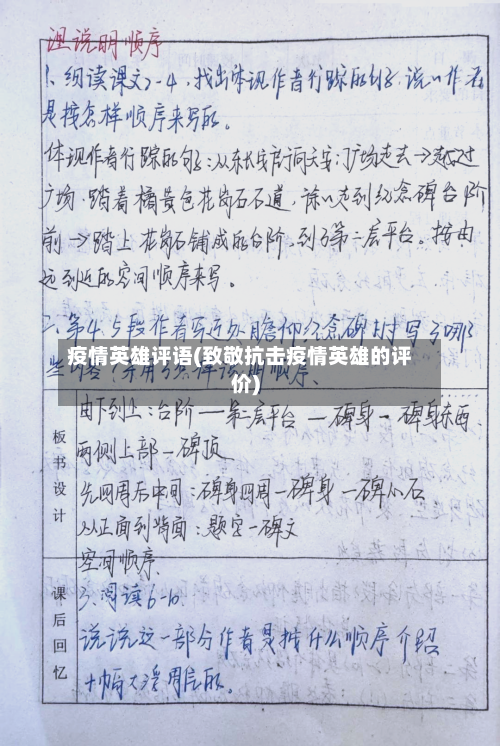 理说明顺序
1、细读课文2-4，找出体现作者行踪的句子，说以作者
是按怎样顺序来写的。
体现作者行踪的句子：从东长安街向天安门广场走去→越过
广场，踏着橘黄色花岗石石道，徐以走到纪念碑台阶
前→踏上花岗石铺成的台阶，到了第二层平台。按由
远到近的空间顺序来写。
二、第4、5段作者写近处瞻仰纪念碑时写了哪
疫情英雄评语(致敬抗击疫情英雄的评
价)
由下到上：台阶—第二层平台—碑身—碑身东西
两侧上部—碑顶
板书设计
先四周后中间：碑身四周—碑身—碑心石
从正面到背面：题字—碑文
空间顺序
课后回忆
3、阅读6-10.
说说这一部分作者是按什么顺序介绍
十幅大浮雕的。